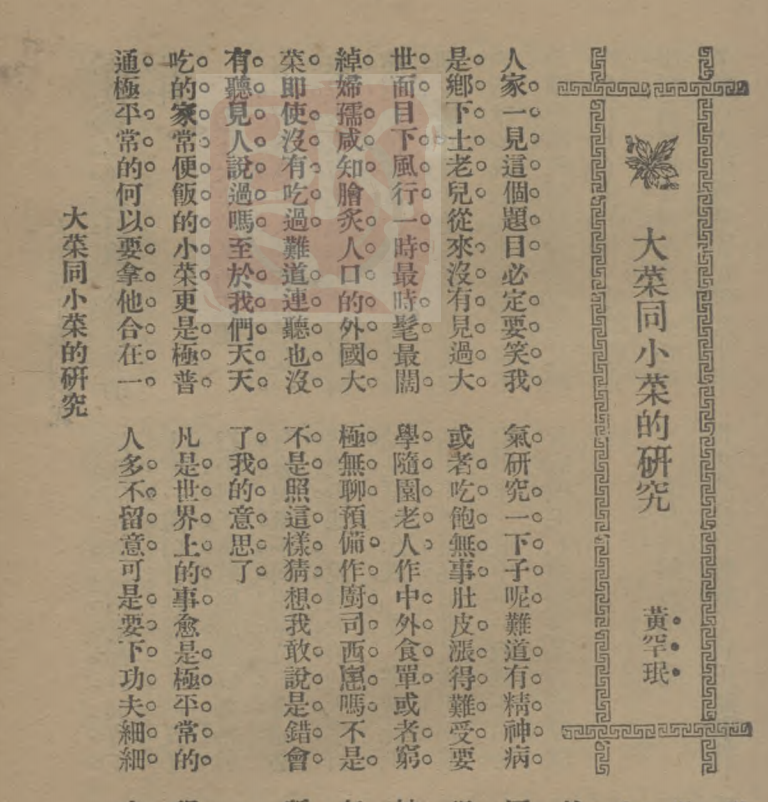 大菜同小菜的研究
黃罕珉
人家一見這個題目必定要笑我
是鄉下土老兒從來沒有見過大
世面目下風行一時最時髦最闊
綽婦孺咸知膾炙人口的外國大
菜即使沒有吃過難道連聽也沒
有聽見人說過嗎至於我們天天
吃的家常便飯的小菜更是極普
通極平常的何以要拿他合在一
氣研究一下子呢難道有精神病
或者吃飽無事肚皮漲得難受要
學隨園老人作中外食單或者窮
極無聊預備作廚司西崽嗎不是
不是照這樣猜想我敢說是錯會
了我的意思了
凡是世界上的事愈是極平常的
人多不留意可是要下功夫細細
大菜同小菜的研究